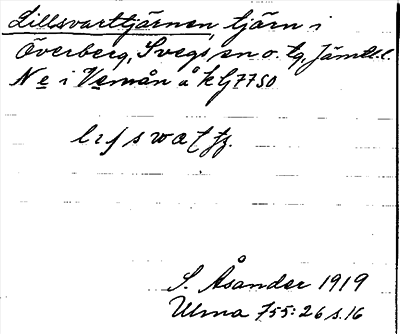 Lillsvarttjärnen, tjärn i
Överberg, Svegs sn o. tg, Jämtl. l.
Ne i Vemån å k G7750
S. Åsander 1919
Ulma 755:26 s. 16